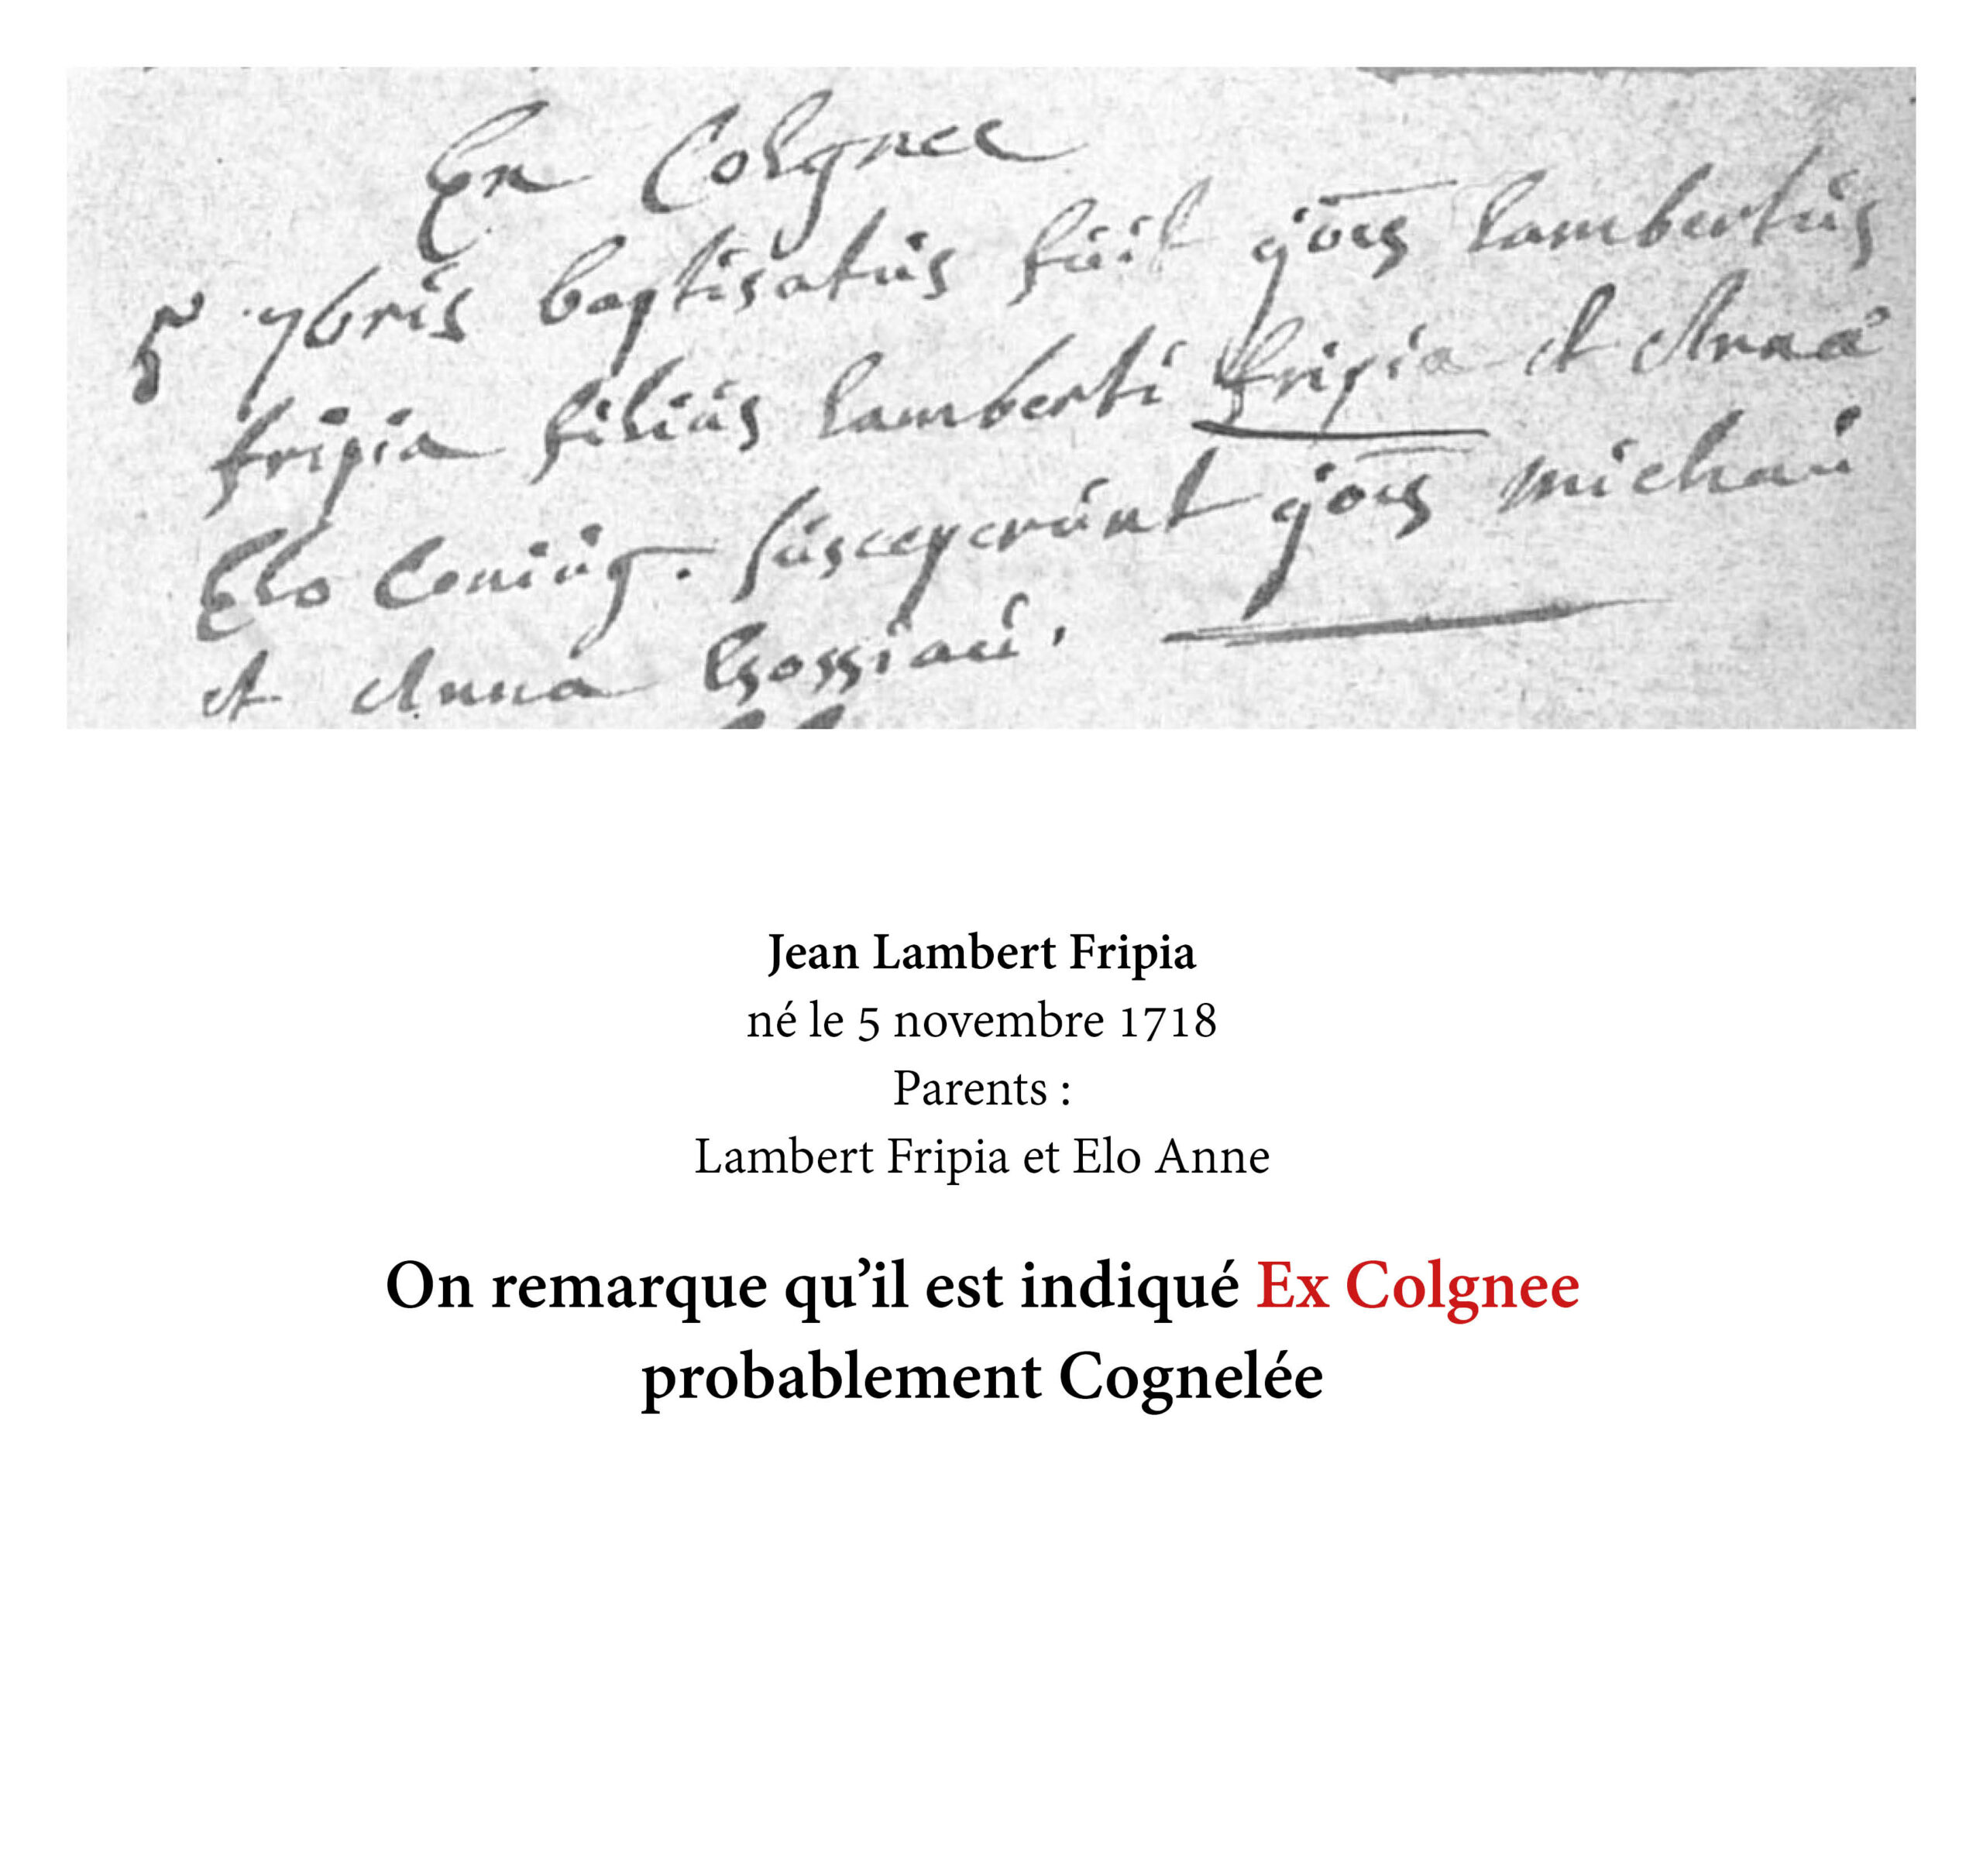 Ex Colgnee
5 9bris baptisatus fuit jões lambertus
fripia filius lamberti fripia et Anna
Elo Coniug. susceperunt jões michaú
et Anna
Jean Lambert Fripia
né le 5 novembre 1718
Parents :
Lambert Fripia et Elo Anne
On remarque qu’il est indiqué Ex Colgnee
probablement Cognelée